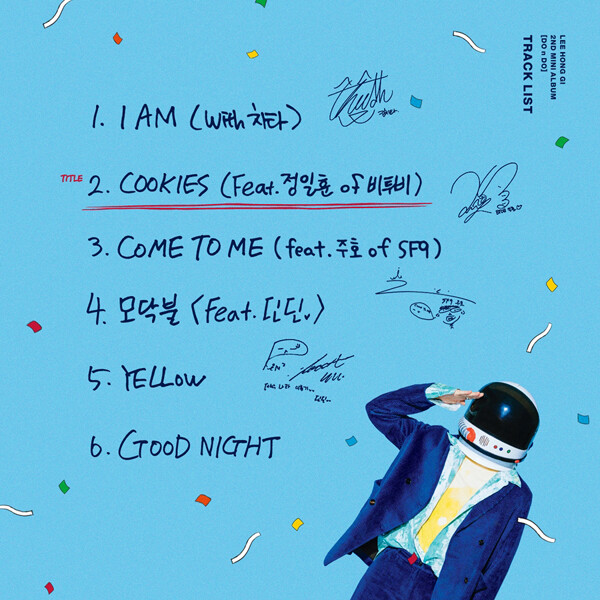 LEE HONG GI
2ND MINI ALBUM
[DO n DO]
TRACK LIST
1. I AM (With 치타)
TITLE 2. COOKIES (Feat. 정일훈 of 비투비)
3. COME TO ME (feat. 주호 of SF9)
4. 모닥불 <Feat. 딘딘>
5. YELLOW
6. GOOD NIGHT